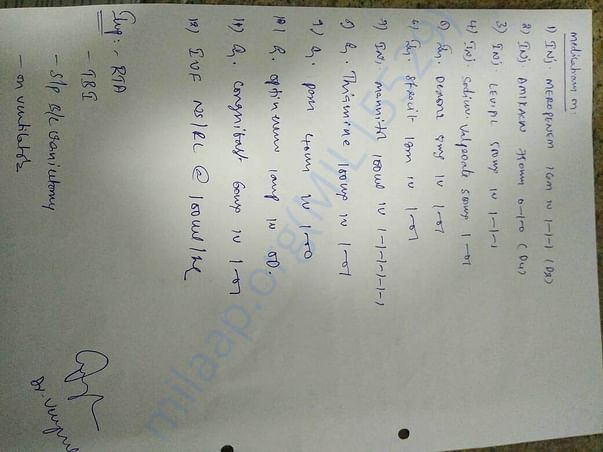 medications on:
1) INJ MEROPENEM 1GM IV 1-1-1 (D8)
2) INJ AMIKACIN 750mg 0-1-0
3) INJ LEVIPIL 500mg IV 1-1-1
4) INJ. Sodium Valproate 500mg 1-0-1
5) INJ. 8mg IV 1-0-1
6) INJ. 1gm IV 1-0-1
7) INJ mannitol 100ml IV 1-1-1-1-1
8) Thiamine 100mg IV 1-0-1
9) pan 40mg IV 1-0-0
10) optineuron 1amp IV OD.
11) IV 1-0-1
12) IVF NS/RL @ 100ml/hr
RTA
- TBI
- S/P B/L craniectomy
- on ventilator
Dr.
milaap.org(MIL155529)